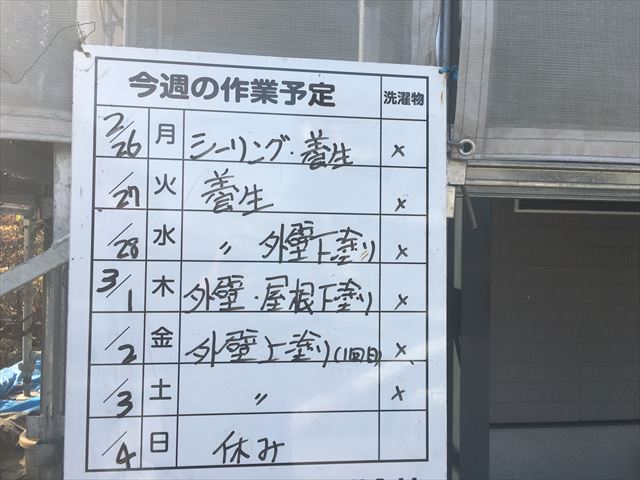 今週の作業予定 洗濯物
2/26 月 シーリング・養生 ×
/27 火 養生 ×
/28 水 〃 外壁上塗り ×
3/1 木 外壁・屋根下塗り ×
/2 金 外壁上塗り(1回目) ×
/3 土 〃 ×
/4 日 休み